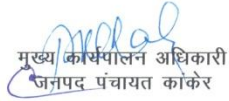 मुख्य कार्यपालन अधिकारी
जनपद पंचायत कांकेर